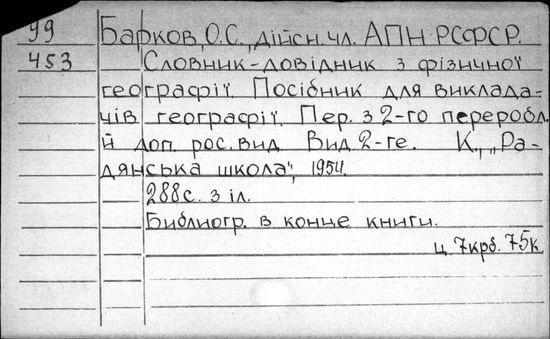 99 Барков, О.С., дійсн. чл. АПН РСФСР.
453 Словник-довідник з фізичної
географії. Посібник для виклада-
чів географії. Пер. з 2-го переробл.
й доп. рос. вид. Вид 2-ге. К., „Ра-
дянська школа", 1954.
288с. з іл.
Библиогр. в конце книги.
ц. 7крб. 75к.